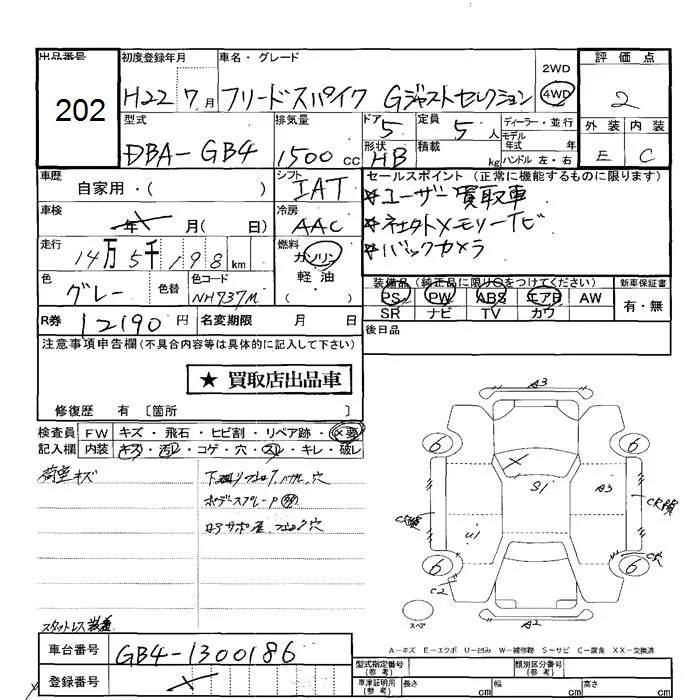 出品番号
202
初度登録年月
H22 7月
車名・グレード
フリードスパイク Gジャストセレクション
2WD
4WD
評価点
2
外装 内装
E C
型式
DBA-GB4
排気量
1500cc
ドア
5
形状
HB
定員
5人
積載
kg
ディーラー・並行
モデル
年式 年
ハンドル 左・右
車歴
自家用・( )
シフト
IAT
車検
年 月( 日)
冷房
AAC
走行
14万5千198km
燃料
ガソリン
軽油
色
グレー
色替
色コード
NH737M
R券 12190円
名変期限 月 日
セールスポイント(正常に機能するものに限ります)
☆ユーザー買取車
☆バックカメラ
装備品(純正品に限り○をつけてください)
PS PW ABS エアB AW
SR ナビ TV カワ
新車保証書
有・無
後日品
注意事項申告欄(不具合内容等は具体的に記入して下さい)
★ 買取店出品車
修復歴 有〔箇所 〕
検査員
記入欄
FW キズ・飛石・ヒビ割・リペア跡・X要
内装 キズ・汚れ・コゲ・穴・スレ・キレ・破レ
荷室キズ
スタットレス装着
A3
6
6
X
S1
A3
U1
6
6
C2
A2
スペ
A-キズ E-エクボ U-凹み W-補修跡 S-サビ C-腐食 XX-交換済
車台番号
GB4-1300186
登録番号
型式指定番号
(参考)
類別区分番号
(参考)
車庫証明用
(参考)
長さ cm 幅 cm 高さ cm